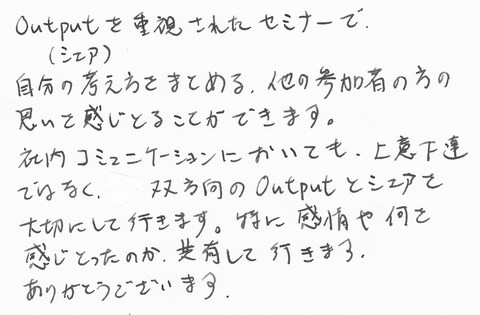 Outputを重視されたセミナーで、
(シェア)
自分の考え方をまとめる、他の参加者の方の
思いを感じとることができます。
社内コミュニケーションにおいても、上意下達
ではなく、 双方向のOutputとシェアを
大切にして行きます。特に感情や何を
感じとったのか、共有して行きます。
ありがとうございます。